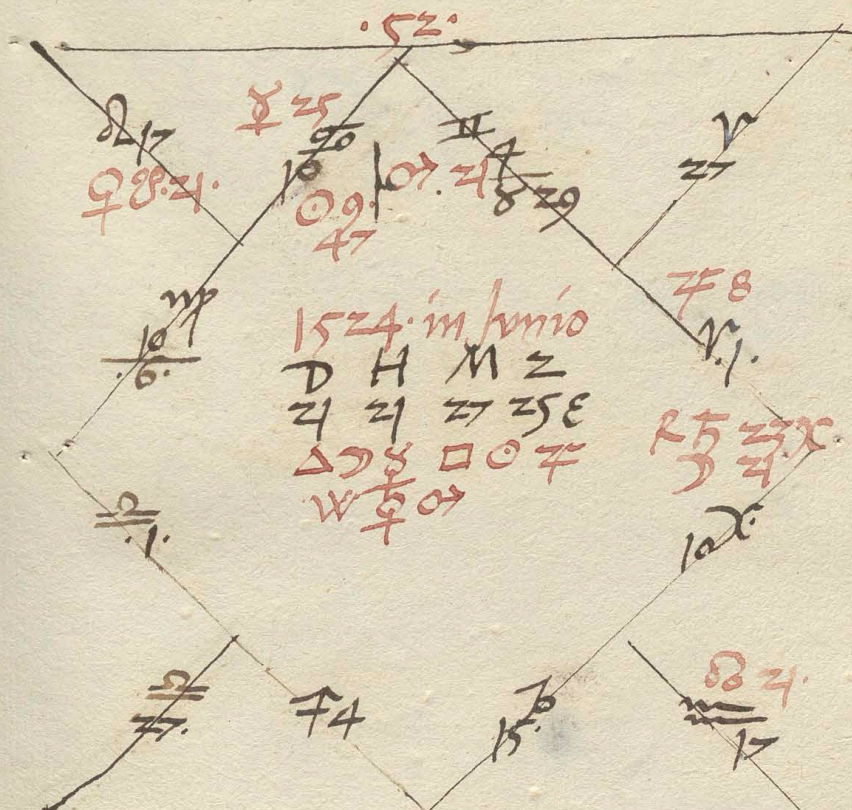 .52.
♌ 17
☿ 25
♋
10
♊
4
♈
27
♀ ♌.21.
☉ 9.
47
♂ 21
♉ 29
♃ 8
♈.1.
♍
10
.6.
1524. in Junio
D H M Z
21 21 27 25
△ ☽ ☿ □ ☉ ♃
♀ ♂
R ♄ 23 ♓
☽ 21
10 ♓.
♎
.1.
♎
27.
♐ 4
♑
15.
☊ 21.
♒
17